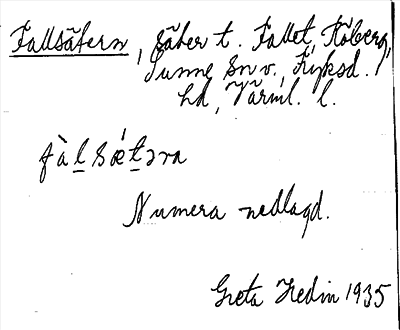 Fallsätern, säter t. Fallet, Råberg,
Sunne sn v., Fryksd.
hd, Värml. l.
fàlsǽtəra
Numera nedlagd.
Greta Hedin 1935